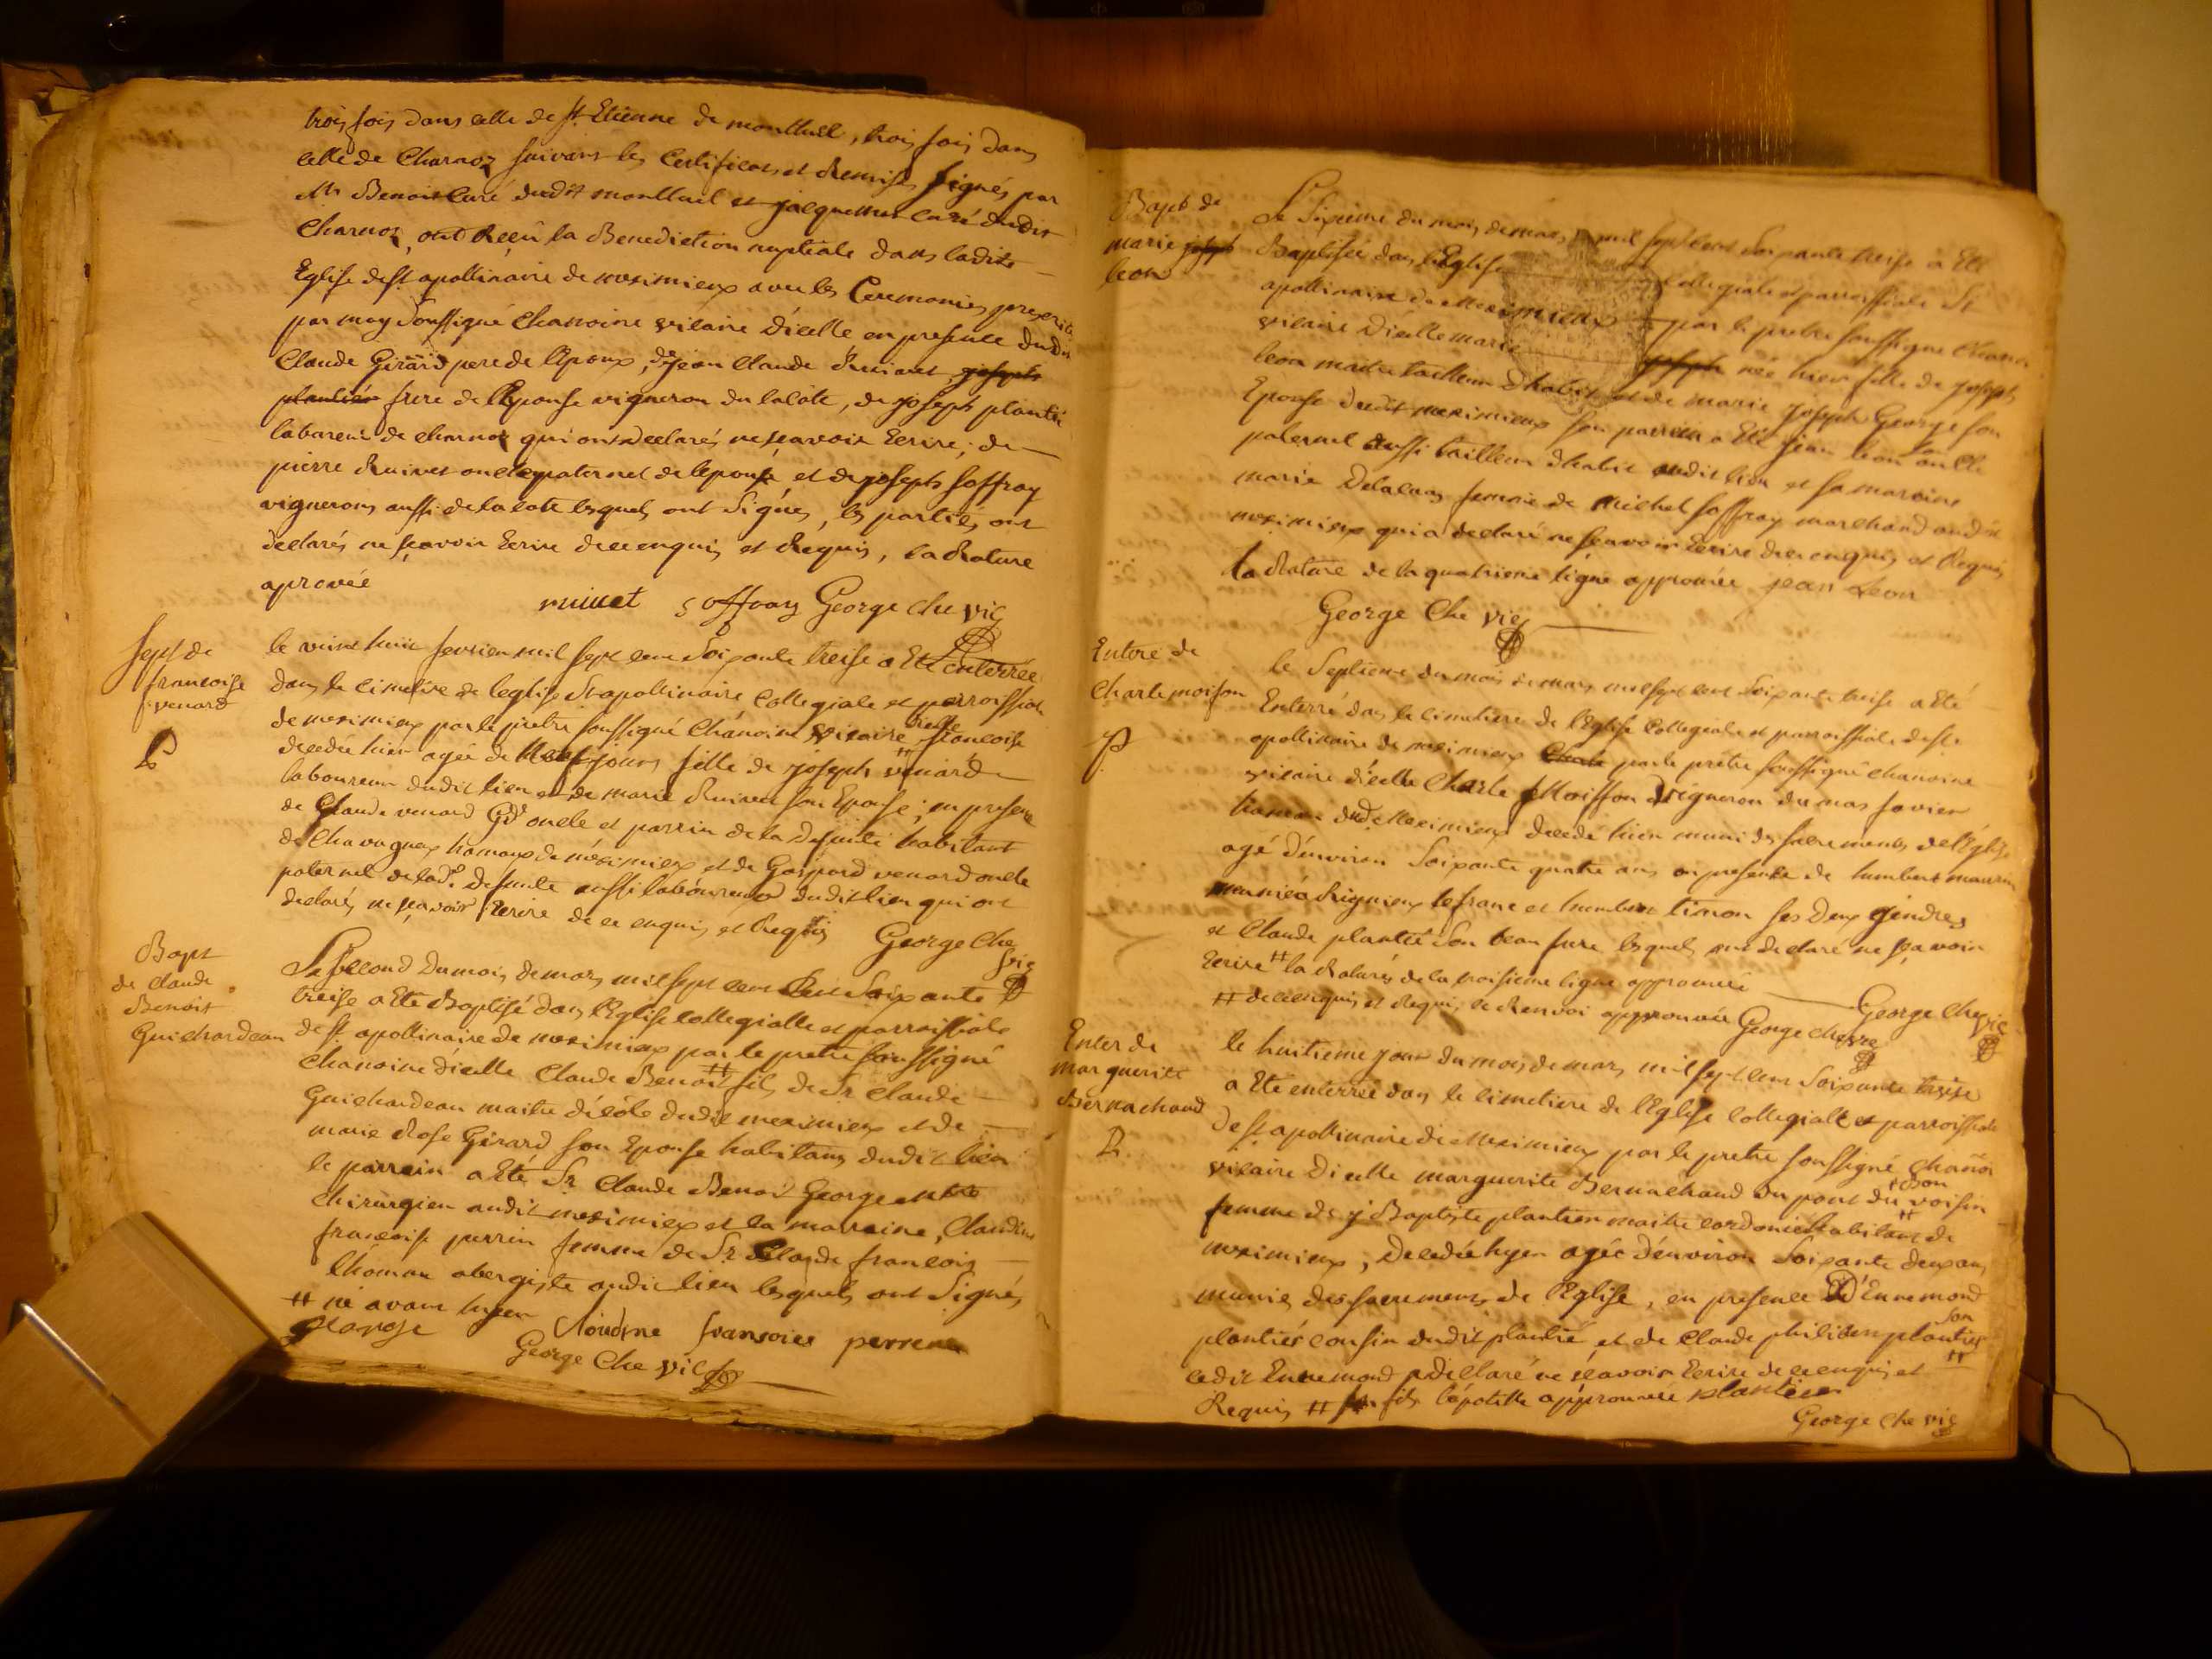 trois fois dans celle de st Etienne de montluel, trois fois dans
celle de Charnoz suivant les Certificats et Remises signés par
Mr Benoit Curé dudit montluel et jacquemet curé dudit
Charnoz, ont Reçu la Benediction nuptiale dans ladite
Eglise de st apollinaire de meximieux avec les Ceremonies prescrites
par moy soussigné Chanoine vicaire d'icelle en presence dudit
Claude Girard pere de l'Epoux, de jean claude Ruivet, joseph
plantier frere de l'Epouse vigneron du lacôte, de joseph plantié
laboureur de charnoz qui ont declarés ne sçavoir Ecrire, de
pierre Ruivet oncle paternel de lepouse, et de joseph soffray
vignerons aussi de la cote lesquels ont signés, les parties ont
declarés ne sçavoir Ecrire de ce enquis et Requis, la Rature
aprovée
ruivet soffray George Che vic
sept de
francoise
venard
le vint huit fevrier mil sept cent soixante treise a Eté enterrée
dans le cimetire de leglise st apollinaire collegiale et parroissiale
de meximieux par le pretre soussigné Chanoine vicaire d'icelle francoise
decedée hier agée de jours fille de joseph venard
laboureur dudit lieu et de marie Ruivet son Epouse; en presence
de Claude venard Gd oncle et parrin de la Defunte habitant
de Chavagneux hameau de méximieux et de Gaspard venard oncle
paternel de lade. defunte aussi laboureur dudit lieu qui ont
declarés ne sçavoir Ecrire de ce enquis et Requis George Che
vic
Bapt
de claude
Benoit
Guichardeau
Le second du mois de mars mil sept cent soixante
treise a Eté Baptisé dans l'Eglise collegialle et parroissiale
de st apollinaire de meximieux par le pretre soussigné
chanoine d'icelle Claude Benoit # fils de Sr Claude
Guichardeau maitre d'école dudit meximieux et de
marie Rose Girard son Epouse habitans dudit lieu
le parrein a Eté Sr Claude Benoit George
chirurgien audit meximieux et la marreine, Claudine
francoise perrin femme de Sr Claude francois
thoman abergiste audit lieu lesquels ont signés
# né avant hyer
George Cloudine fransoise perren
George Che vic
Bapt de
marie joseph
leon
Le sixieme du mois de mars mil sept cent soixante treise a Eté
Baptisée dans l'Eglise collegiale et parroissiale St
apollinaire de Meximieux par le pretre soussigné Chanoi
vicaire d'icelle marie joseph née hier fille de joseph
leon maitre tailleur d'habit et de marie joseph George son
Epouse dudit meximieux son parrein a Eté jean leon son oncle
paternel aussi tailleur d'habit audit lieu et sa maraine
marie Delalay femme de michel soffray marchand audit
meximieux qui a declaré ne sçavoir Ecrire de ce enquis et Requis
la Rature de la quatrieme ligne approuvée jean Leon
George Che vic
Enterre de
Charle moison
le septieme du mois de mars mil sept cent soixante treise a Eté
Enterré dans le cimetiere de l'Eglise collegiale et parroissiale de st
apollinaire de meximieux Charle par le prêtre soussigné chanoine
vicaire d'icelle Charle Moisson vigneron du mas
hameau dudt Meximieux decedé hier muni des sacrements de l'Eglise
agé d'environ soixante quatre ans en presence de humbert maurin
Rignieux le franc et humbert timon ses deux gendres
et Claude plantié son beau frere lesquels ont declaré ne sçavoir
Ecrire # la Raturés de la troisieme ligne approuvée George Che vic
# de ce enquis et Requis, le Renvoi approuvée George che vic
Enter de
marguerite
Bernachaud
le huitieme jour du mois de mars mil sept cent soixante treise
a Eté enterrée dans le cimetiere de l'Eglise collegialle et parroissiale
de st apollinaire de Meximieux par le pretre soussigné chanoi
vicaire d'icelle marguerite Bernachaud du pont du voisin
femme de j Baptiste plantier maitre cordonier habitant de
meximieux, decedée hyer agée d'environ soixante deux ans
munie des sacrements de l'Eglise, en presence D'Ennemond
plantier cousin dudit plantié et de Claude philibert plantier son
ledit Ennemond a declaré ne sçavoir Ecrire de ce enquis et
Requis # fils l'apostille approuvée plantier
George Che vic